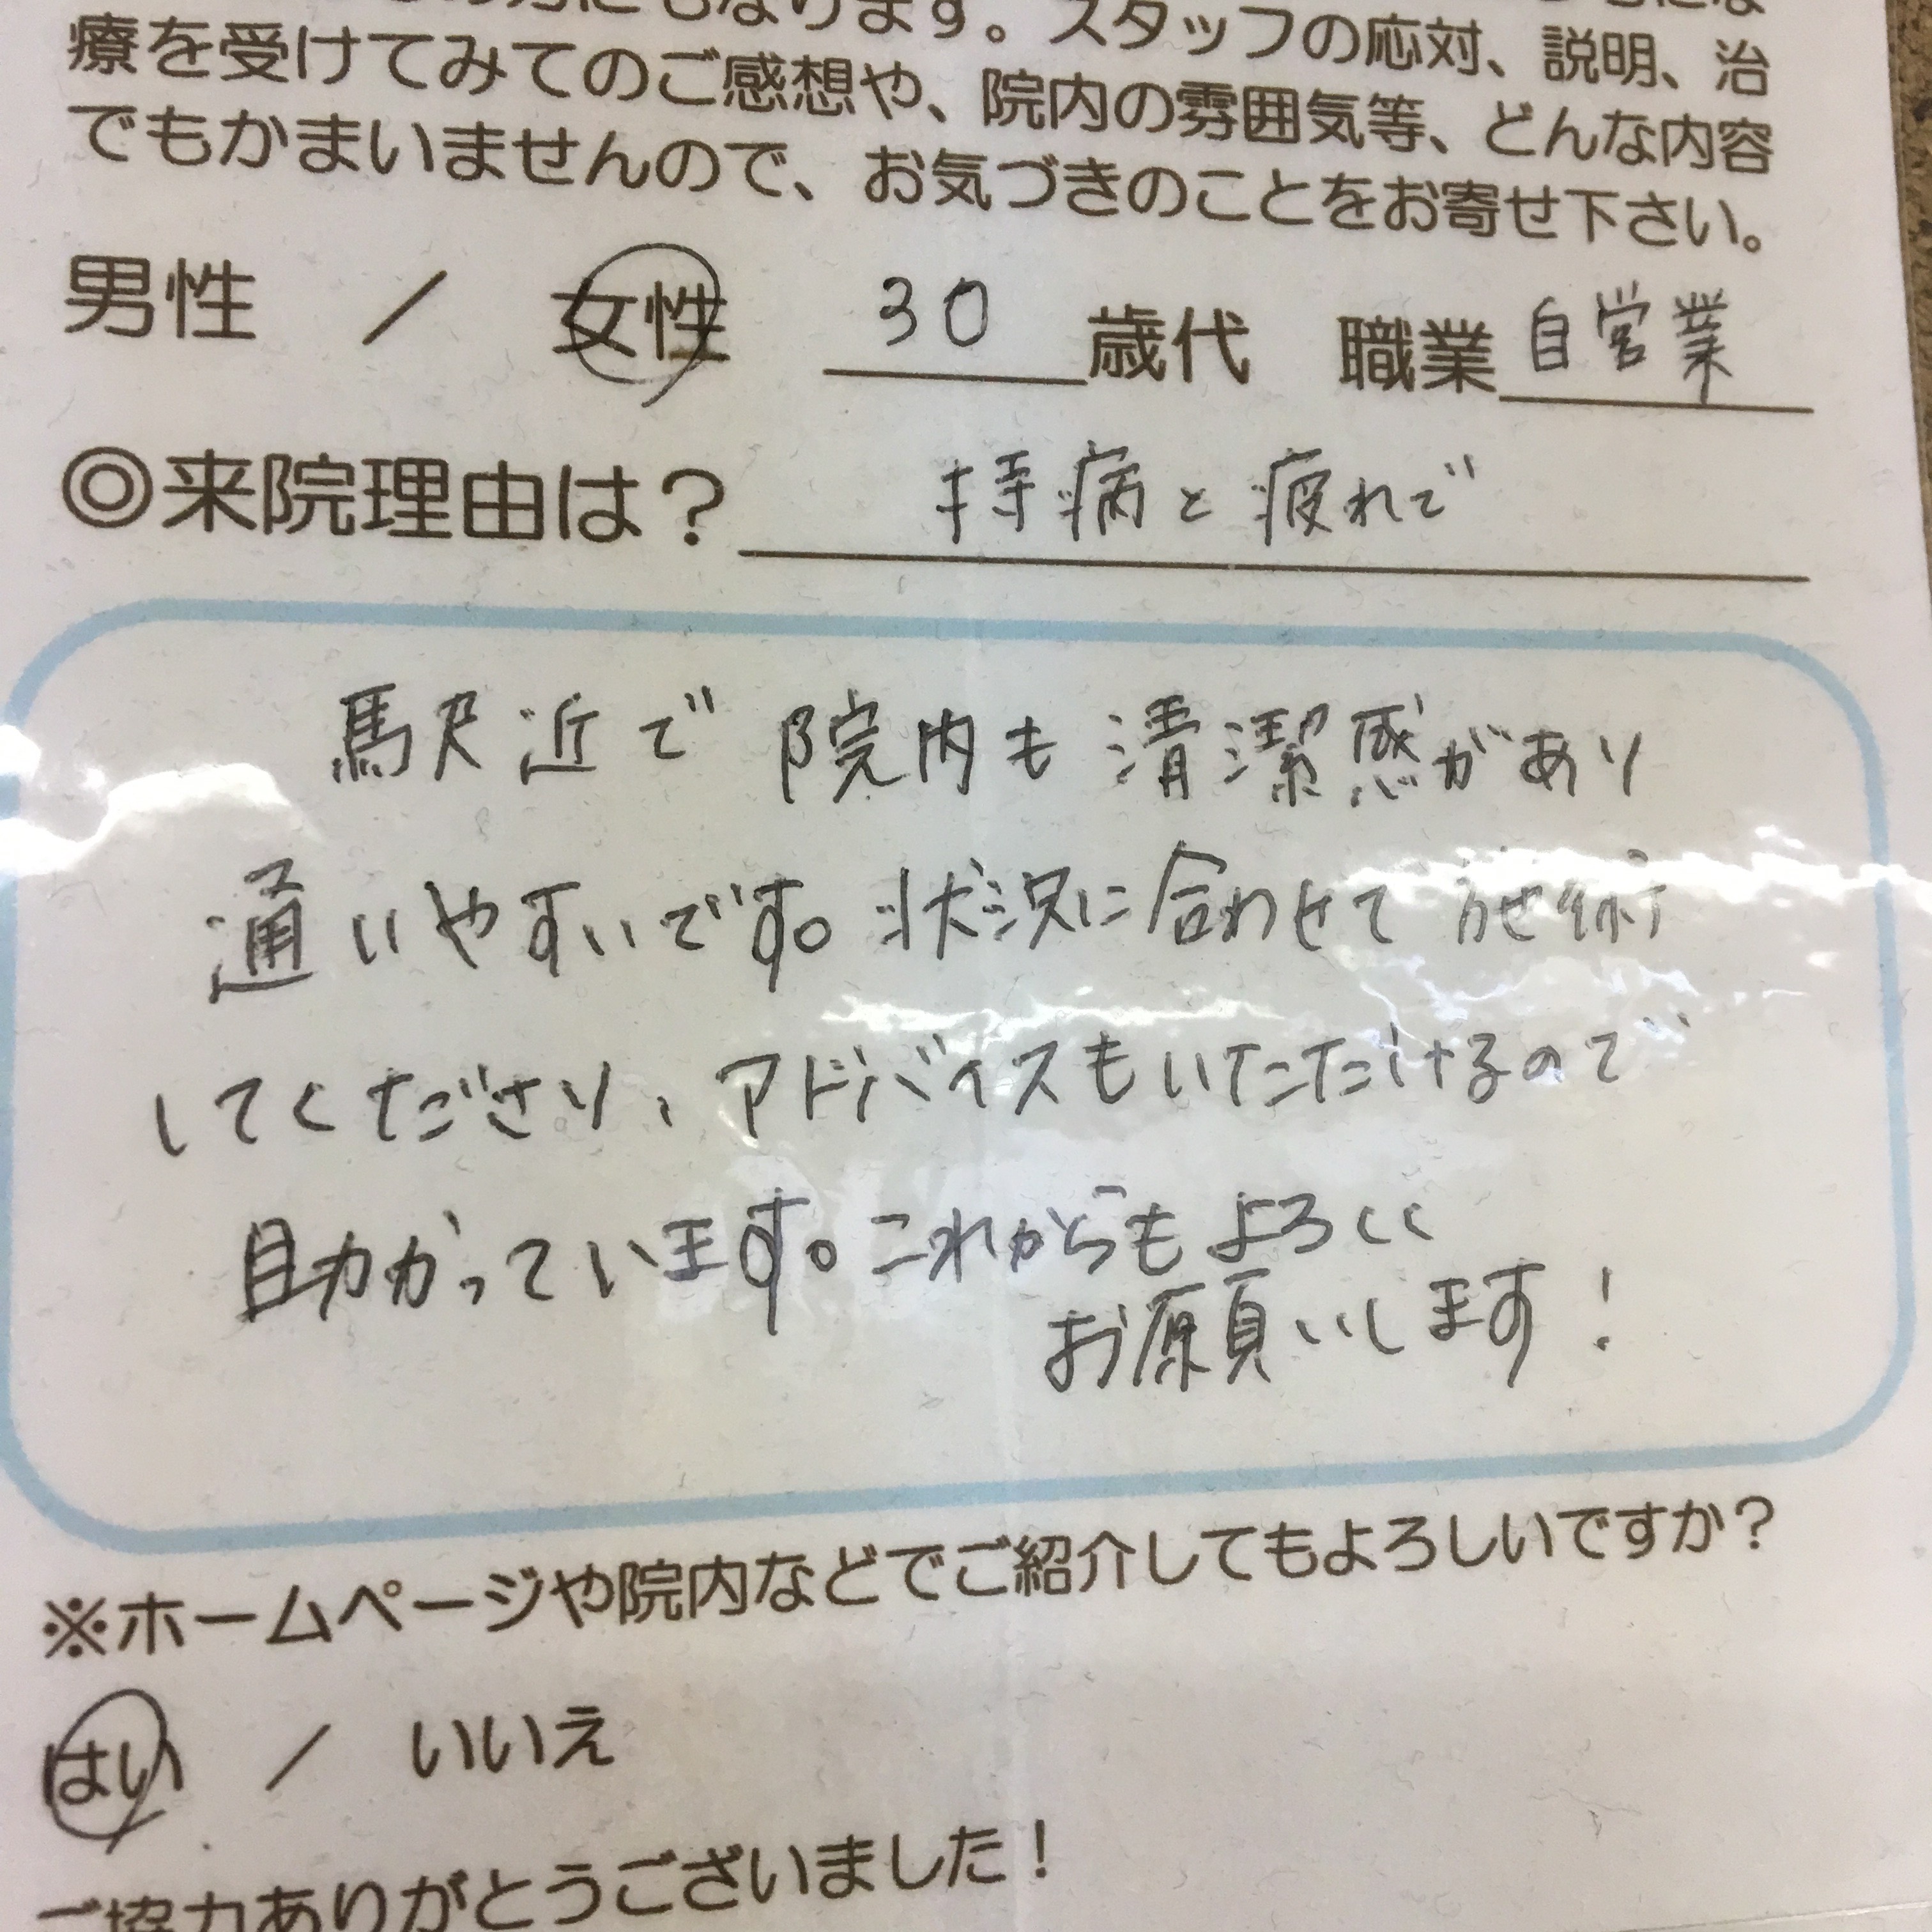 なります。スタッフの応対、説明、治
療を受けてみてのご感想や、院内の雰囲気等、どんな内容
でもかまいませんので、お気づきのことをお寄せ下さい。
男性 / 女性 30歳代 職業 自営業
◎来院理由は? 持病と疲れで
駅近で院内も清潔感があり
通いやすいです。状況に合わせて施術
してくださり、アドバイスもいただけるので
助かっています。これからもよろしく
お願いします!
※ホームページや院内などでご紹介してもよろしいですか?
はい / いいえ
ご協力ありがとうございました!